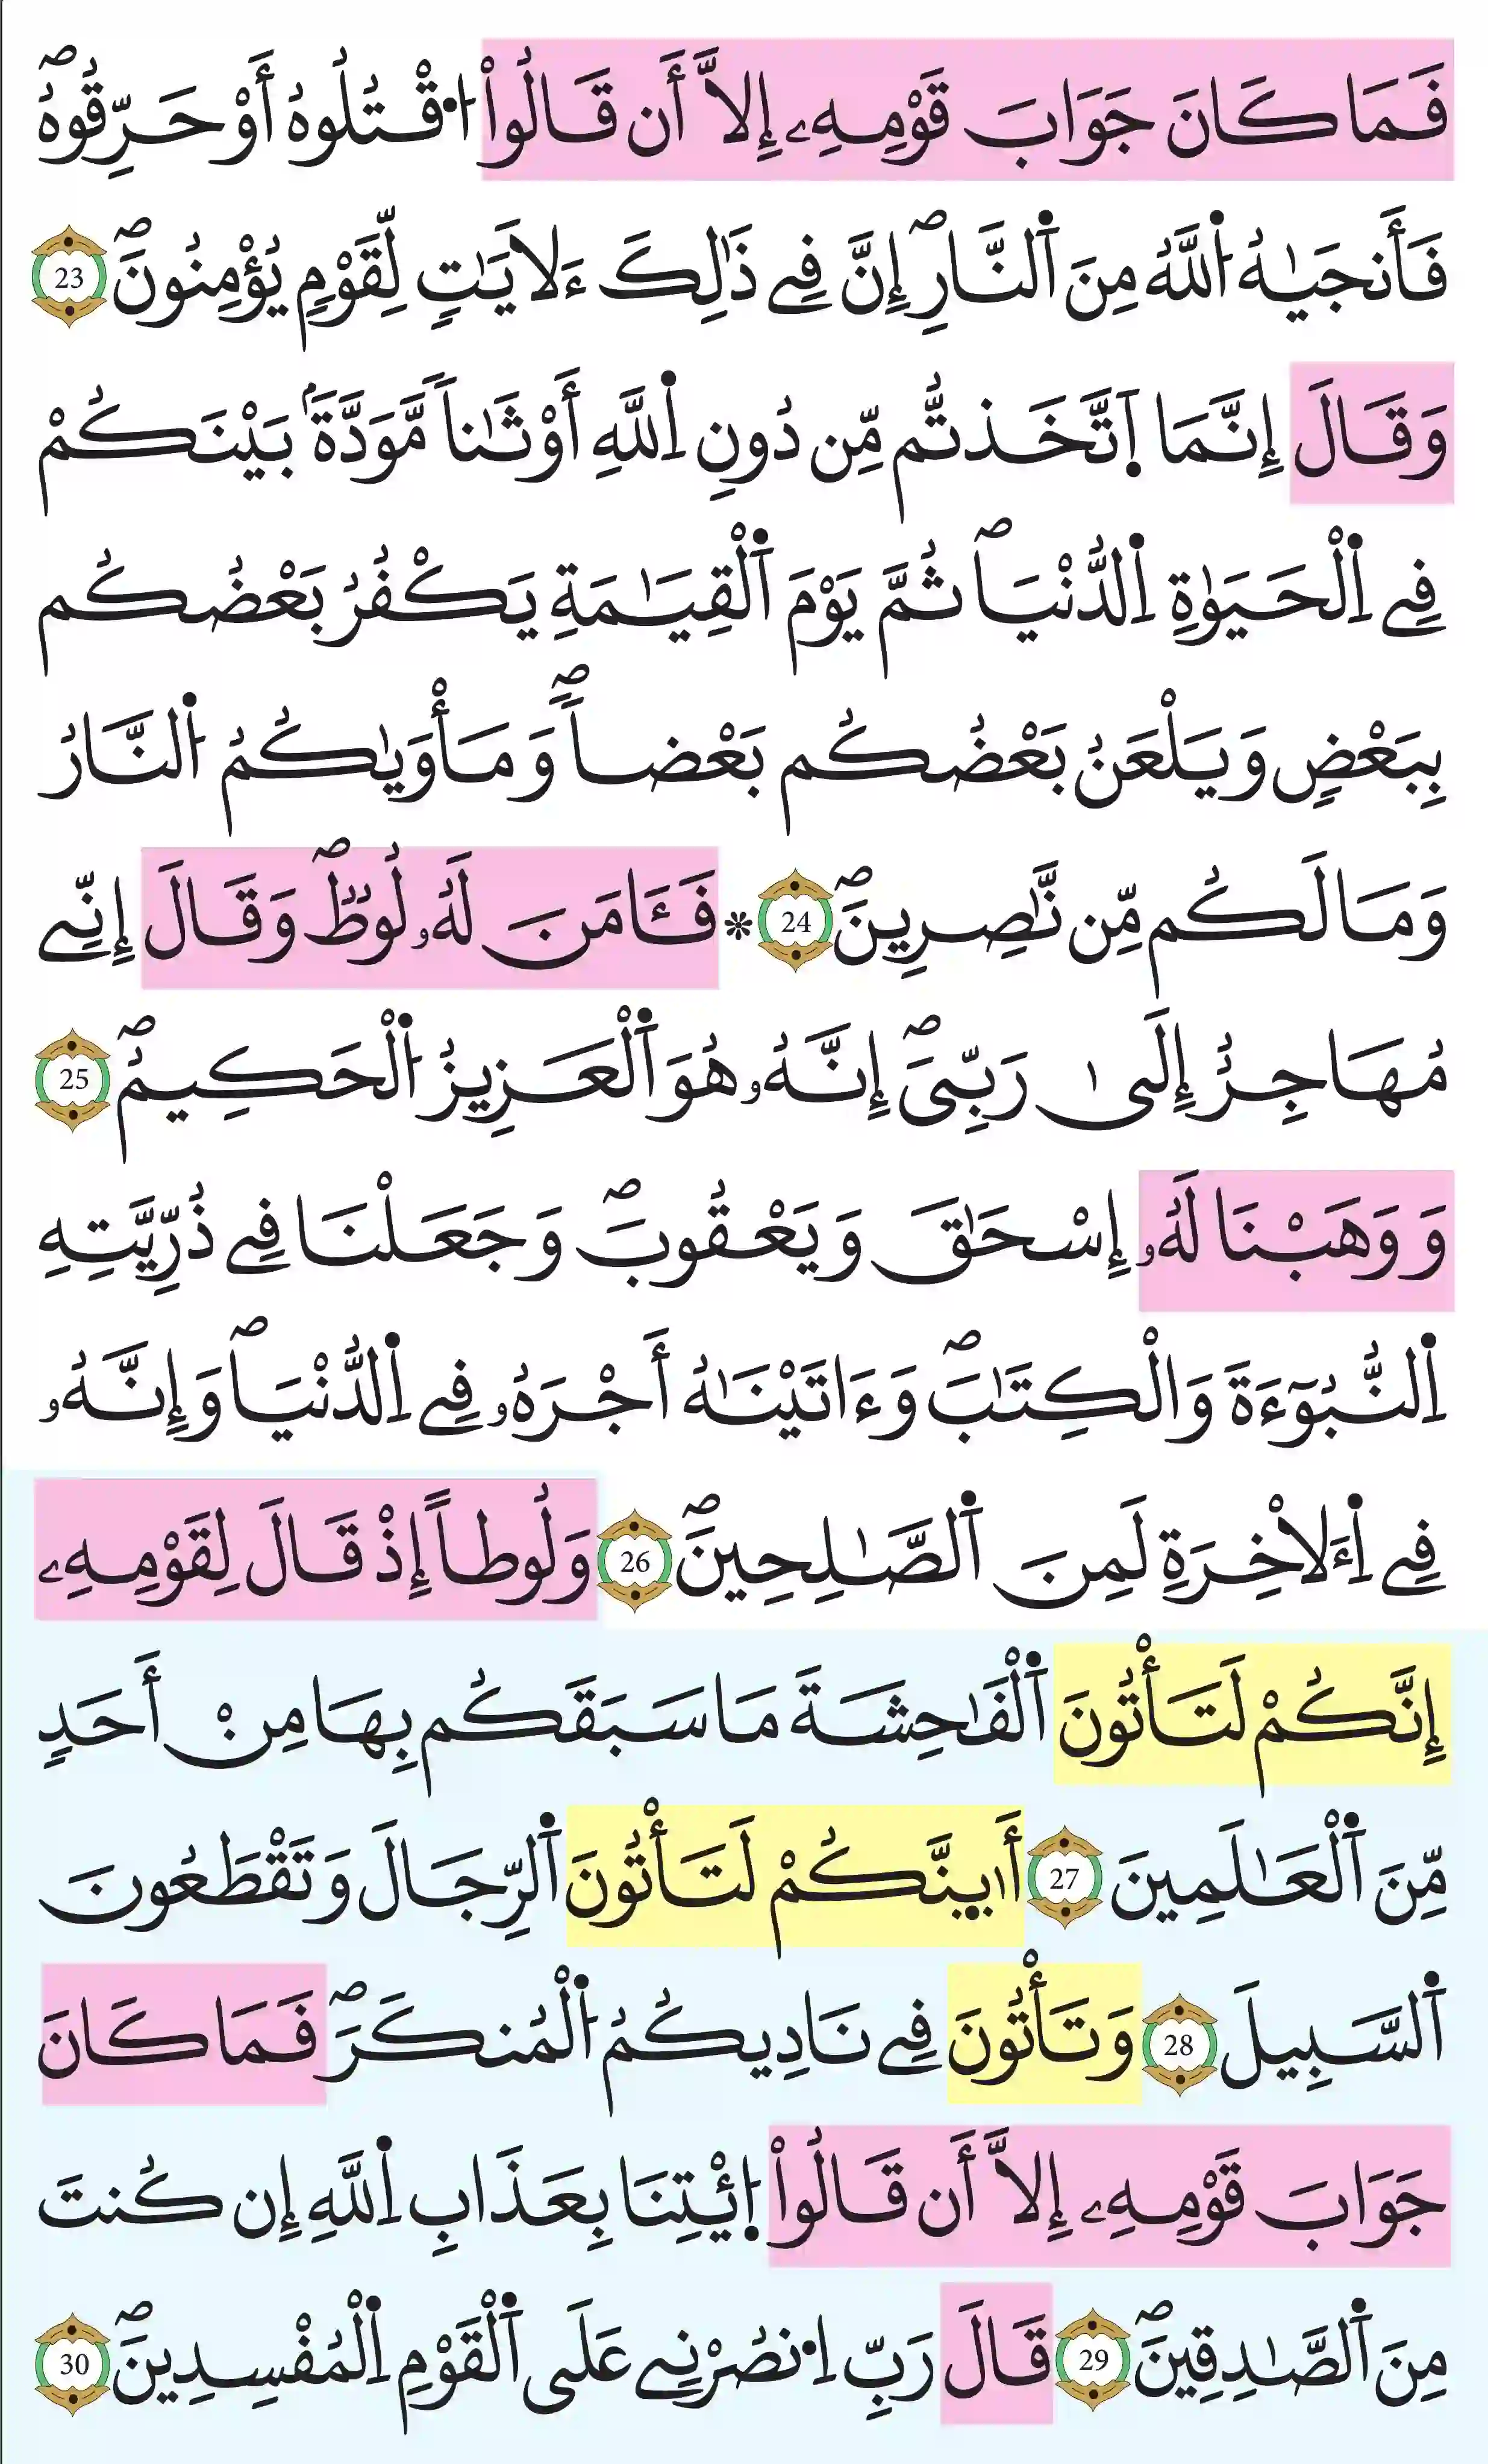 فَمَا كَانَ جَوَابَ قَوْمِهِۦ إِلَّآ أَن قَالُواْ اُ۟قْتُلُوهُ أَوْ حَرِّقُوهُۖ
فَأَنج۪يٰهُ اُ۬للَّهُ مِنَ اَ۬لنّ۪ارِۖ إِنَّ فِے ذَٰلِكَ ءَلَايَٰتٖ لِّقَوْمٖ يُؤْمِنُونَۖ 23
وَقَالَ إِنَّمَا اَ۪تَّخَذتُّم مِّن دُونِ اِ۬للَّهِ أَوْثَٰناٗ مَّوَدَّةَۢ بَيْنَكُمْ
فِے اِ۬لْحَيَوٰةِ اِ۬لدُّنْي۪اۖ ثُمَّ يَوْمَ اَ۬لْقِيَٰمَةِ يَكْفُرُ بَعْضُكُم
بِبَعْضٖ وَيَلْعَنُ بَعْضُكُم بَعْضاٗۖ وَمَأْو۪يٰكُمُ اُ۬لنَّارُ
وَمَا لَكُم مِّن نَّٰصِرِينَۖ 24 ۞ فَـَٔامَنَ لَهُۥ لُوطٞۖ وَقَالَ إِنِّے
مُهَاجِرٌ إِلَىٰ رَبِّيَۖ إِنَّهُۥ هُوَ اَ۬لْعَزِيزُ اُ۬لْحَكِيمُۖ 25
وَوَهَبْنَا لَهُۥ إِسْحَٰقَ وَيَعْقُوبَۖ وَجَعَلْنَا فِے ذُرِّيَّتِهِ
اِ۬لنُّبُوٓءَةَ وَالْكِتَٰبَۖ وَءَاتَيْنَٰهُ أَجْرَهُۥ فِے اِ۬لدُّنْي۪اۖ وَإِنَّهُۥ
فِے اِ۬ءَلَاخِرَةِ لَمِنَ اَ۬لصَّٰلِحِينَۖ 26 وَلُوطاً إِذْ قَالَ لِقَوْمِهِۦ
إِنَّكُمْ لَتَأْتُونَ اَ۬لْفَٰحِشَةَ مَا سَبَقَكُم بِهَا مِنْ أَحَدٖ
مِّنَ اَ۬لْعَٰلَمِينَ 27 أَا۟ىِٕنَّكُمْ لَتَأْتُونَ اَ۬لرِّجَالَ وَتَقْطَعُونَ
اَ۬لسَّبِيلَ 28 وَتَأْتُونَ فِے نَادِيكُمُ اُ۬لْمُنكَرَۖ فَمَا كَانَ
جَوَابَ قَوْمِهِۦ إِلَّآ أَن قَالُواْ اُ۪ئْتِنَا بِعَذَابِ اِ۬للَّهِ إِن كُنتَ
مِنَ اَ۬لصَّٰدِقِينَۖ 29 قَالَ رَبِّ اِ۟نصُرْنِے عَلَى اَ۬لْقَوْمِ اِ۬لْمُفْسِدِينَۖ 30